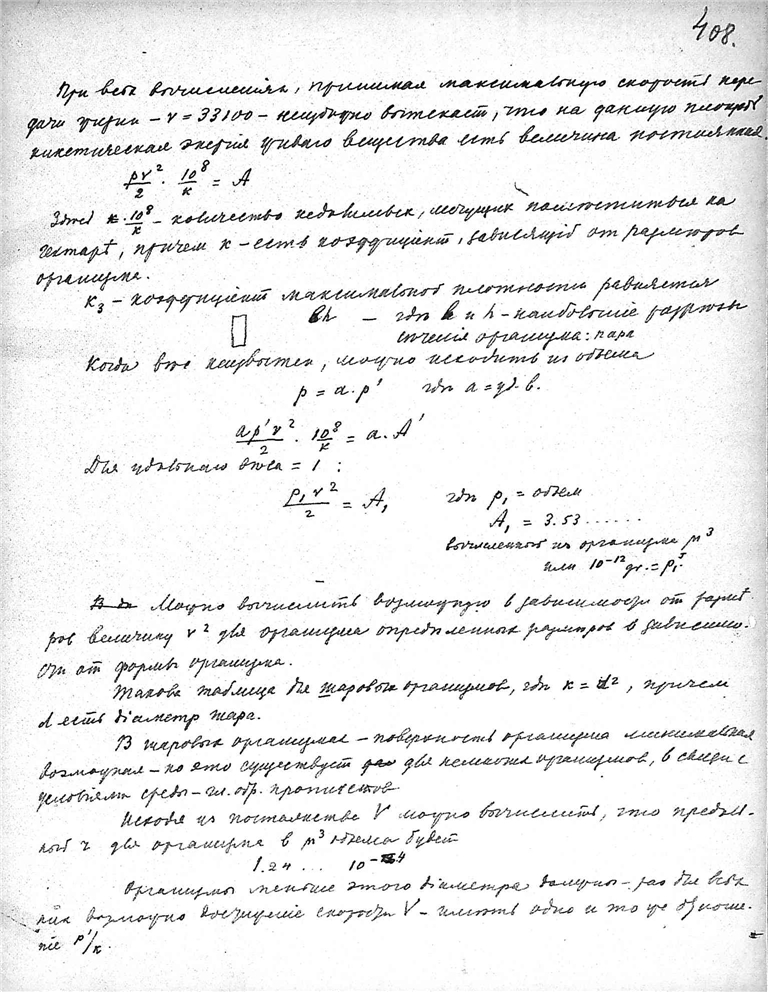 408.
При всѣх вычисленіях, принимая максимальную скорость пере
дачи жизни – v = 33100 – неизбѣжно вытекает, что на данную площадь
кинетическая энергія живого вещества есть величина постоянная.
pv²/2 · 10⁸/к = A
Здѣсь 10⁸/к – количество недѣлимых, могущих помѣститься на
гектарѣ, причем к – есть коэффиціент, зависящій от размѣров
организма.
к₃ – коэффиціент максимальной плотности равняется
bh – гдѣ b и h – наибольшіе размѣры
сѣченія организма:
Когда вѣс неизвѣстен, можно исходить из объема
p = a · p' гдѣ a = уд. в.
ap'v²/2 · 10⁸/к = a. A'
Для удѣльнаго вѣса = 1 :
p₁v²/2 = A₁ гдѣ p₁ = объем
A₁ = 3.53 ......
вычисленный из организма μ³
или 10⁻¹² gr. = p₁
Можно вычислить возможную в зависимости от размѣ
ров величину v² для организма опредѣленных размѣров в зависимо-
сти от формы организма.
Такова таблица для шаровых организмов, гдѣ к = d², причем
d есть діаметр шара.
В шаровых организмах – поверхность организма минимальная
возможная – но это существует для немногих организмов, в связи с
условіями среды – гл. обр. протистов
Исходя из постоянства V можно вычислить, что предѣль-
ный τ для организма в μ³ объема будет
1.24 ... 10⁻⁴
Организмы меньше этого діаметра должны – раз для всѣх
них возможно достиженіе скорости V – имѣть одно и то же отноше-
ніе p'/к.